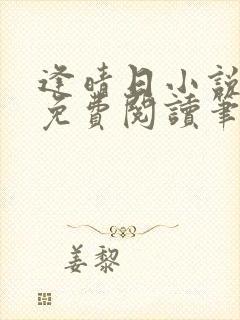 逢晴日小說
免費閱讀筆
姜黎